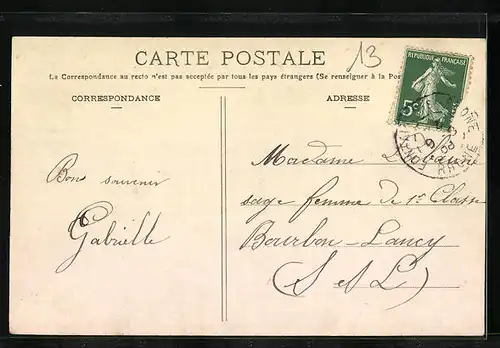 CARTE POSTALE
13
RÉPUBLIQUE FRANÇAISE
5c
La Correspondance au recto n'est pas acceptée par tous les pays étrangers (Se renseigner à la
CORRESPONDANCE
ADRESSE
Madame
sage femme de 1e Classe
Bourbon-Lancy
(S et L)
Bon souvenir
Gabrielle